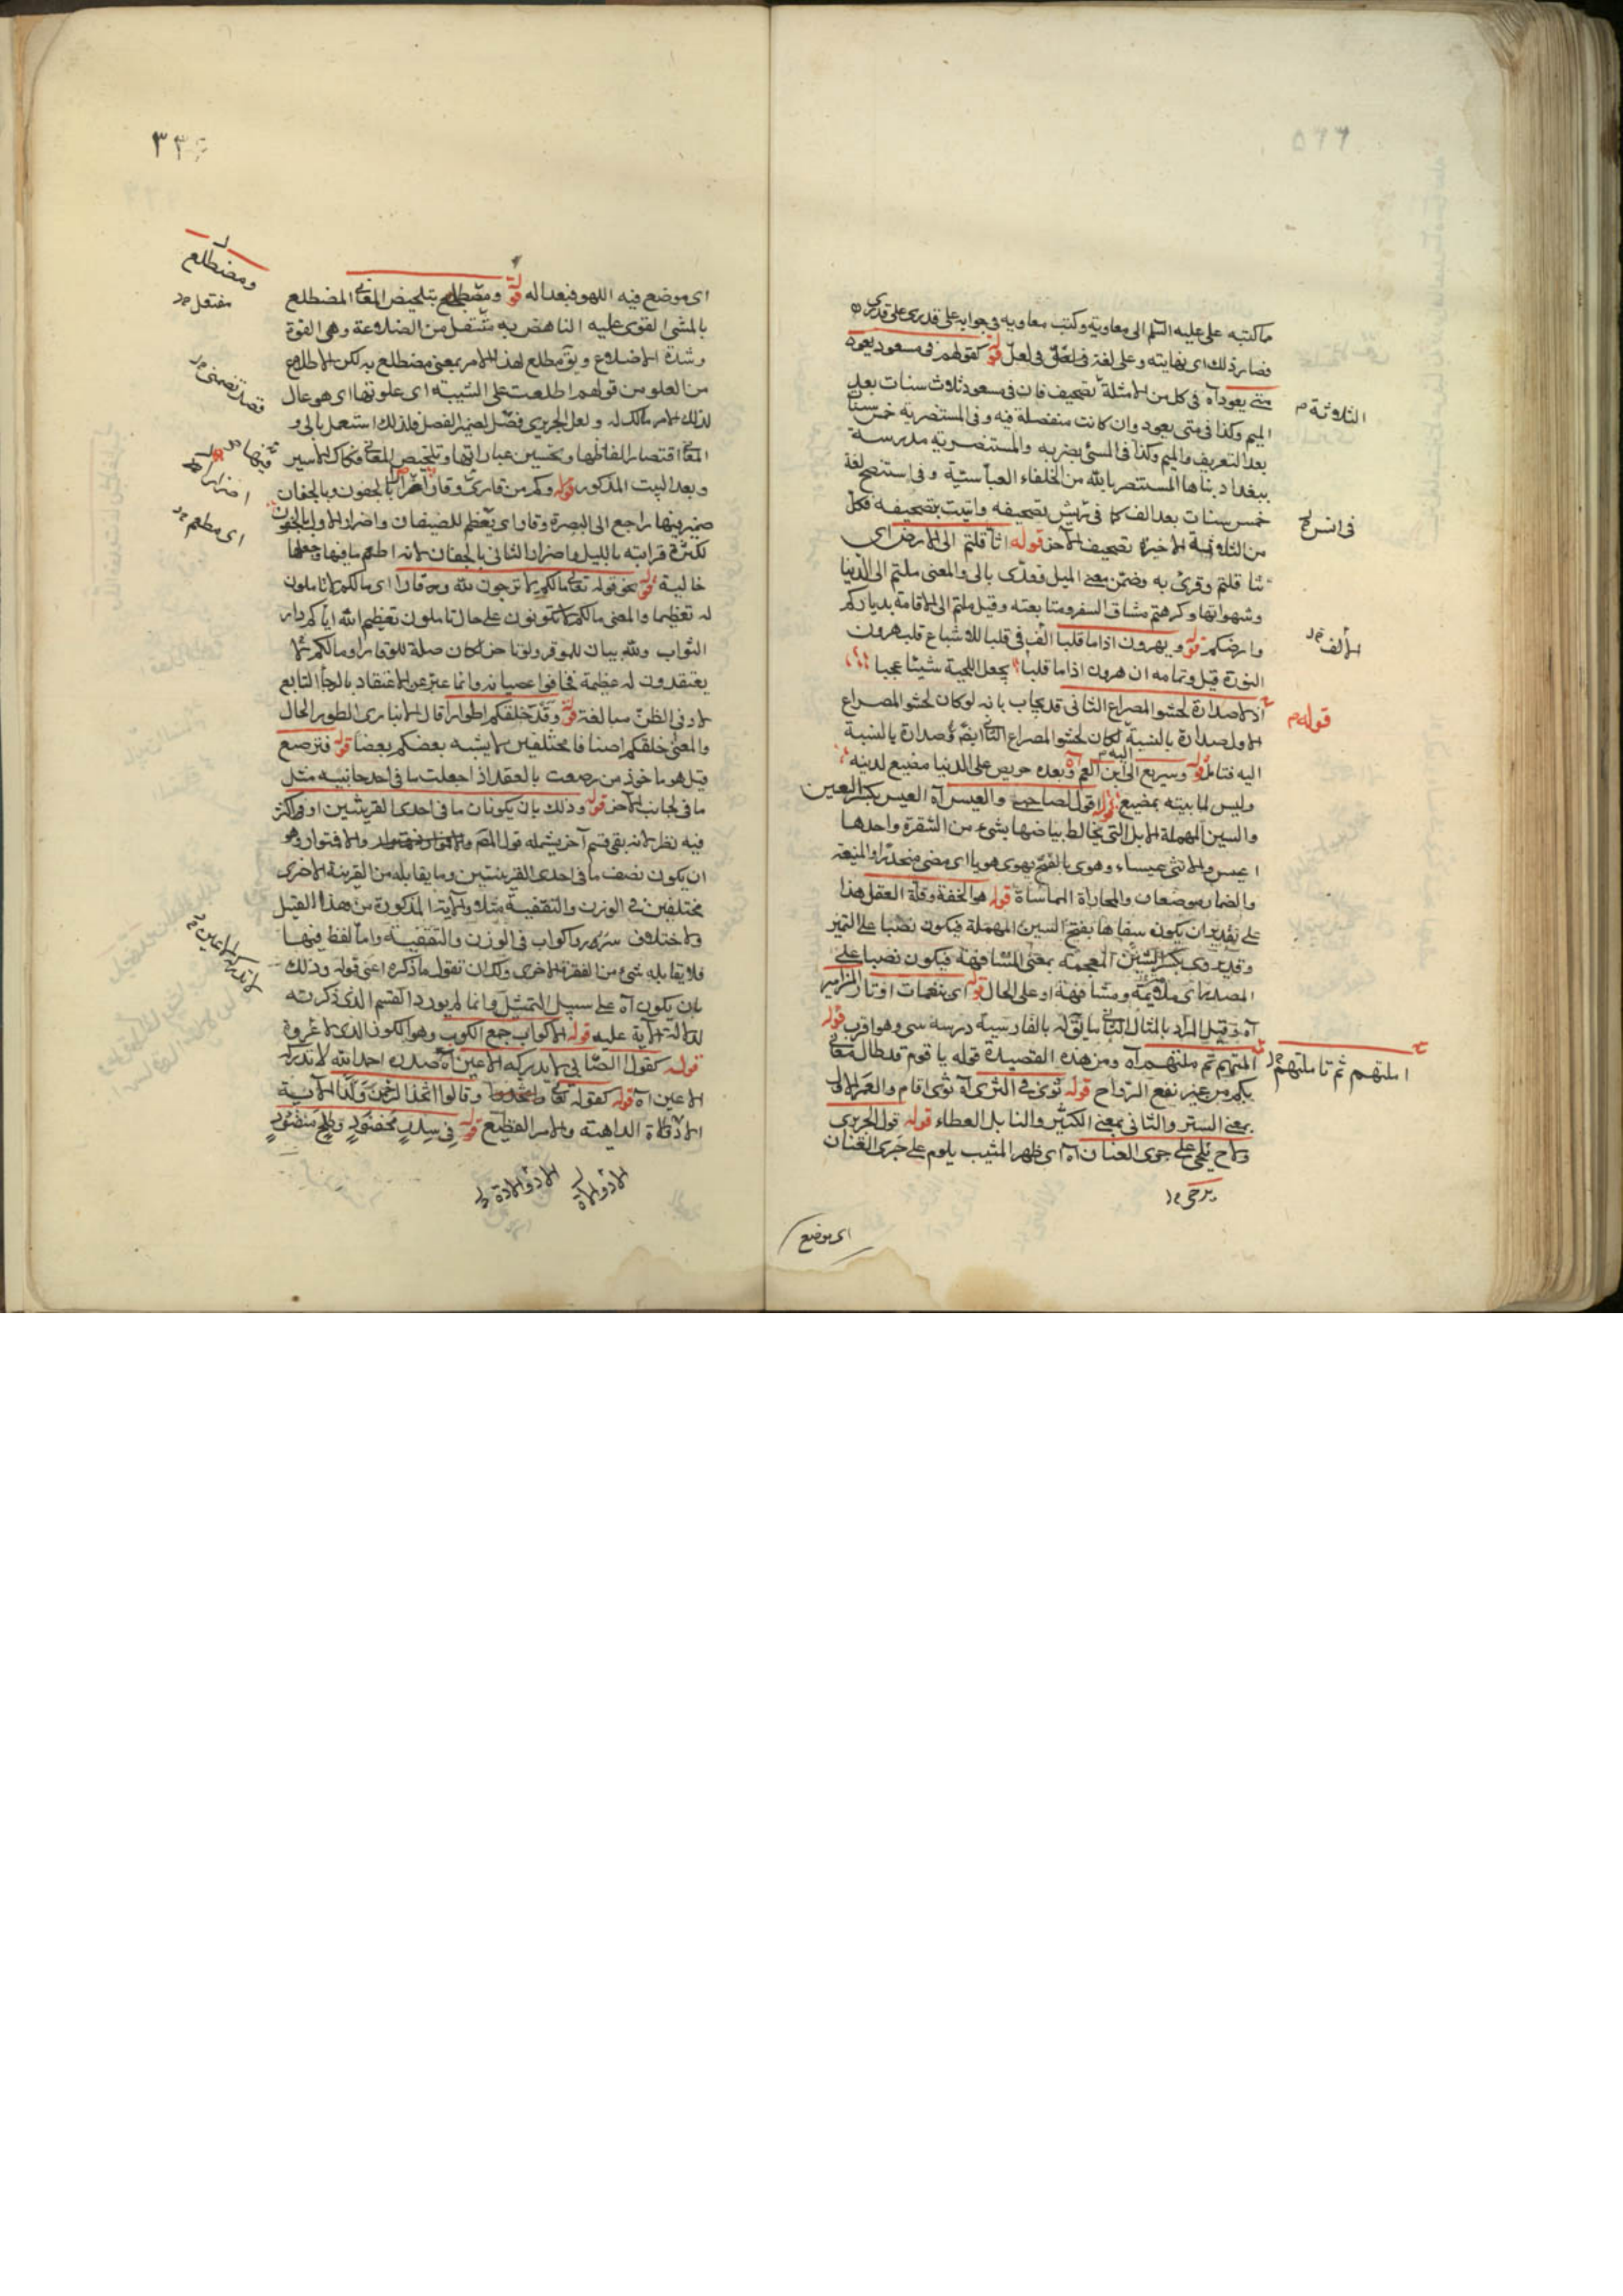 ما كتبه على عليه السلم الى معاوية وكتب معاويه فى جوابه على قدرى على قدرى
فصار ذلك اى نهايته وعلى لغة فى لعل قوله كقولهم فى مسعود يعود
متى يعود آه فى كل من الامثلة تصحيف فان فى مسعود ثلاث سنات بعد
الميم وكذا فى متى يعود وان كانت منفصلة فيه وفى المستنصرية خمس سنات
بعد التعريف والميم وكذا فى المسئ بضربه والمستنصريه مدرسة
ببغداد بناها المستنصر بالله من الخلفاء العباسية وفى استنصح لغة
خمس سنات بعد الف كما فى تصحيفه واتيت بتصحيفه فكل
من الثلاثة الاخيرة تصحيف الآخر قوله اثاقلتم الى الارض اى
تثاقلتم وقرئ به وضمن معنى الميل فعدى بالى والمعنى ملتم الى الدنيا
وشهواتها وكرهتم مشاق السفر ومتابعته وقيل ملتم الى الاقامة بدياركم
وارضكم قوله ويهرون اذا ما قلبا الف فى قلبا للاشباع قلب هرون
النورة قيل وتمامه ان هرون اذا ما قلبا يجعل اللحية شيئا عجبا
اذ لا صدارة لحشو المصراع الثانى قد يجاب بانه لو كان لحشو المصراع
الاول صدارة بالنسبة لكان لحشو المصراع الثانى ايضا صدارة بالنسبة
اليه فتامل قوله وسريع الى ابن العم آه وبعده حريص على الدنيا مضيع لدينه
وليس لما بيته بمضيع قوله اقول لصاحبى والعيس آه العيس بكسر العين
والسين المهملة الابل التى يخالط بياضها بشئ من الشقرة واحدها
اعيس والانثى عيساء وهوى بالفتح يهوى هويا اى مضى منحدرا والمنيفة
والضمار موضعان والمجاراة المماشاة قوله هو الخفة وقلة العقل هذا
على تقدير ان يكون سفاها بفتح السين المهملة فيكون نصبا على التميز
وقد يروى بكسر الشين المعجمة بمعنى المشافهة فيكون نصبا على
المصدر اى ملامة ومشافهة او على الحال قوله اى بنغمات اوتار المزامير
آه وقيل المراد بالمثال الثانى ما يقال بالفارسية درسه سى وهو اقرب قوله
املتهم ثم ملتهم آه ومن هذه القصيدة قوله يا قوم قد طال مقامى
بكم من غير نفع الرواح قوله ثوى فى الثرى آه ثوى اقام والغمر الاول
بمعنى الستر والثانى بمعنى الكثير والنابل العطاء قوله قول الحريرى
ولاح يلحى على جرى العنان آه اى ظهر المشيب يلوم على جرى العنان
الثلاثة
قوله
املتهم ثم تاملتهم
اى موضع
اى موضع فيه اللهو فبعدا له قوله ومضطلع بتلخيص المعانى المضطلع
بالمشى القوى عليه الناهض به مفتعل من الضلاعة وهى القوة
وشدة الاضلاع ويق مطلع لهذا الامر بمعنى مضطلع به لكن الاطلاع
من العلو من قولهم اطلعت على الثنية اى علوتها اى هو عال
لذلك الامر مالك له ولعل الحريرى
المعانى اقتصار الفاظها وتحسين عباراتها وتلخيص المعانى فكاك الاسير
وبعد البيت المذكور قوله وكم من قارئ وقار بالجفون وبالجفان
ضمير بينها راجع الى البصرة وقار اى يعظم للضيفان واضرار الاول بالجفون
لكثرة قرابته بالليل واضرار الثانى بالجفان لانه اطعم ما فيها وجعلها
خالية قوله نحو قوله تعالى مالكم لا ترجون لله وقارا اى مالكم لا تاملون
له تعظيما والمعنى مالكم لا تكونون على حال تاملون تعظيم الله اياكم فى دار
الثواب ولله بيان للموقر ولو تاخر لكان صلة للوقار او مالكم لا
يعتقدون له عظمة فخافوا عصيانه وانما عبر عن الاعتقاد بالرجاء التابع
لادنى الظن مبالغة قوله وقد خلقكم اطوارا قال الانبارى الطور الحال
والمعنى خلقكم اصنافا مختلفين لا يشبه بعضكم بعضا قوله فترصيع
قيل هو ماخوذ من رصعت بالعقد اذا جعلت ما فى احد جانبيه مثل
ما فى الجانب الآخر قوله وذلك بان يكونان ما فى احدى القرينتين او اكثر
فيه نظر لانه بقى قسم آخر يشمله قول المص وهو
ان يكون نصف ما فى احدى القرينتين وما يقابله من القرينة الاخرى
مختلفين فى الوزن والتقفية مثلا والآية المذكورة من هذا القبيل
ولاختلاف سرر واكواب فى الوزن والتقفية واما لفظ فيها
فلا يقابله شئ من الفقرة الاخرى ولك ان تقول ما ذكره اعنى قوله وذلك
بان يكون آه على سبيل التمثيل وانما لم يورد القسم الذى ذكرته
لدلالة الآية عليه قوله الاكواب جمع الكوب وهو الكوز الذى لا عروة
قوله كقول الصابى لا تدركه الاعين آه صدره احد الله لا تدركه
الاعين آه قوله كقوله تعالى وقالوا اتخذ الرحمن ولدا الآية
الداهية والامر الفظيع قوله فى سدر مخضود وطلح منضود
ومضطلع
مفتعل
فيها
اى مطعم
لا تدركه الاعين